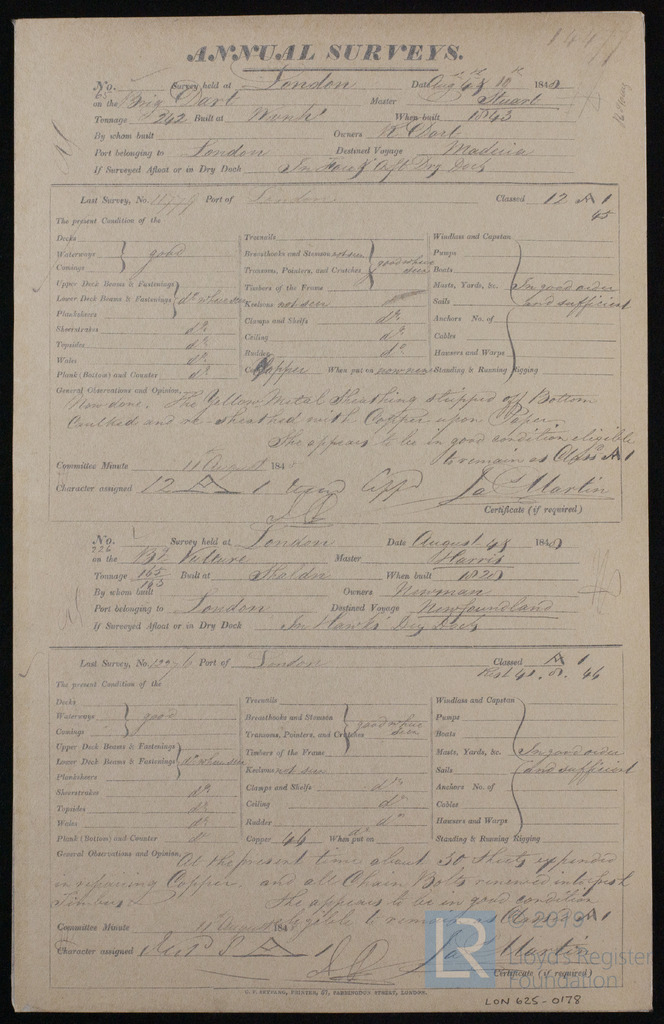 ANNUAL SURVEYS.
No. Survey held at London Date Aug 1848
on the Brig Dart Master Stuart
Tonnage 242 Built at When built 1843
By whom built Owners R Dart
Port belonging to London Destined Voyage Madeira
If Surveyed Afloat or in Dry Dock In Dry Dock
Last Survey, No. Port of London Classed 12 A 1
45
The present Condition of the
Decks
Waterways } good
Comings
Upper Deck Beams & Fastenings
Lower Deck Beams & Fastenings } do where seen
Planksheers
Sheerstrakes do
Topsides do
Wales do
Plank (Bottom) and Counter do
Treenails
Breasthooks and Stemson not seen
Transoms, Pointers, and Crutches } good where seen
Timbers of the Frame
Keelsons not seen do
Clamps and Shelfs do
Ceiling do
Rudder do
Copper When put on now new
Windlass and Capstan
Pumps
Boats
Masts, Yards, &c. In good order
Sails and sufficient
Anchors No. of
Cables
Hawsers and Warps
Standing & Running Rigging
General Observations and Opinion,
Now done. The Yellow Metal Sheathing stripped off Bottom
Caulked and re-sheathed with Copper upon Paper
She appears to be in good condition eligible
to remain as Class A 1
Committee Minute 11 August 184
Character assigned 12 A 1 Jas Martin
Certificate (if required)
No. Survey held at London Date August 48 184
226
on the Bg Vulture Master Harris
Tonnage 165/163 Built at Shaldn When built 1829
By whom built Owners Newman
Port belonging to London Destined Voyage Newfoundland
If Surveyed Afloat or in Dry Dock In Hawks Dry Dock
Last Survey, No. Port of London Classed A 1
46
The present Condition of the
Decks
Waterways } good
Comings
Upper Deck Beams & Fastenings
Lower Deck Beams & Fastenings } do where seen
Planksheers
Sheerstrakes do
Topsides do
Wales do
Plank (Bottom) and Counter do
Treenails
Breasthooks and Stemson
Transoms, Pointers, and Crutches } good where seen
Timbers of the Frame
Keelsons not seen
Clamps and Shelfs do
Ceiling do
Rudder do
Copper 46 When put on
Windlass and Capstan
Pumps
Boats
Masts, Yards, &c. In good order
Sails and sufficient
Anchors No. of
Cables
Hawsers and Warps
Standing & Running Rigging
General Observations and Opinion,
At the present time about 50 Sheets expended
in repairing Copper. and all Chain Bolts renewed into fresh
Timbers
She appears to be in good condition
eligible to remain as Class A 1
Committee Minute 11 August 184
Character assigned A 1 Jas Martin
Certificate (if required)
LR © 2019
Lloyd's Register
Foundation
PRINTER, 67, FARRINGDON STREET, LONDON.
LON 625-0178